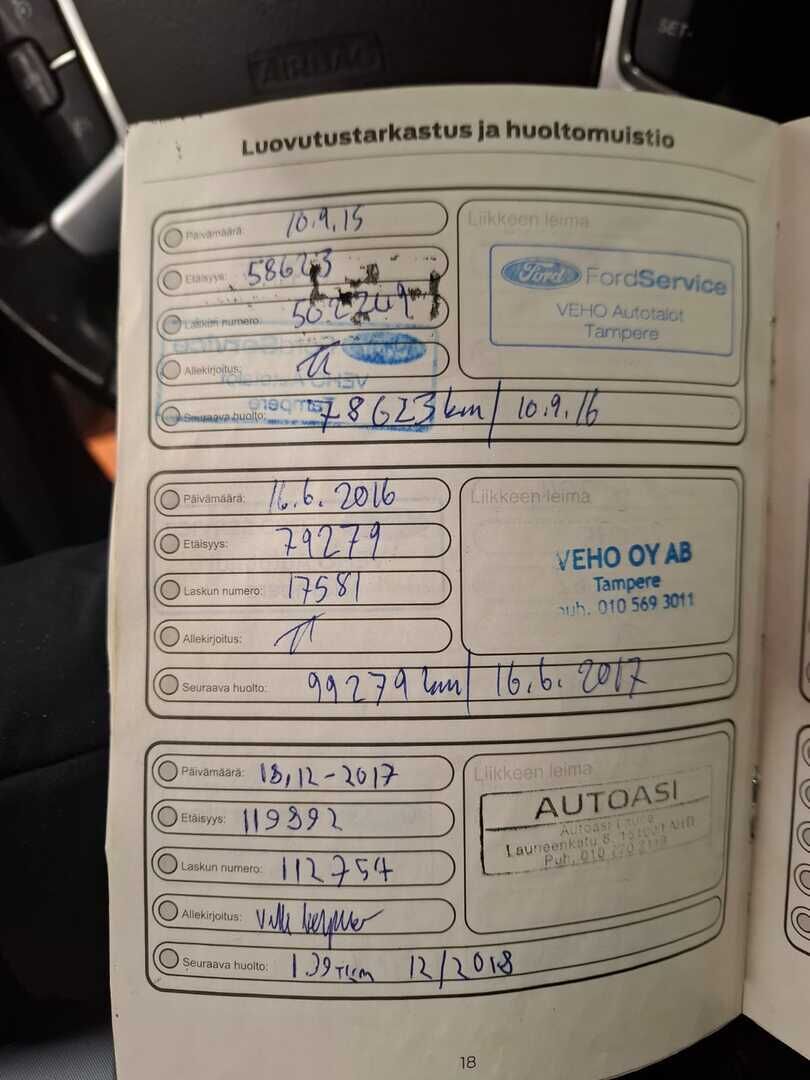 AIRBAG
SET-
Luovutustarkastus ja huoltomuistio
Päivämäärä: 10.9.15
Etäisyys: 58623
Laskun numero:
Allekirjoitus:
Seuraava huolto: 78623 km / 10.9.16
Liikkeen leima
Ford FordService
VEHO Autotalot
Tampere
Päivämäärä: 16.6. 2016
Etäisyys: 79279
Laskun numero: 17581
Allekirjoitus:
Seuraava huolto: 99279 km / 16.6. 2017
Liikkeen leima
VEHO OY AB
Tampere
puh. 010 569 3011
Päivämäärä: 18.12-2017
Etäisyys: 119392
Laskun numero: 112754
Allekirjoitus:
Seuraava huolto: 139 tkm 12/2018
Liikkeen leima
AUTOASI
Autoasi Laune
Launeenkatu 8, 15100 LAHTI
Puh. 010
18